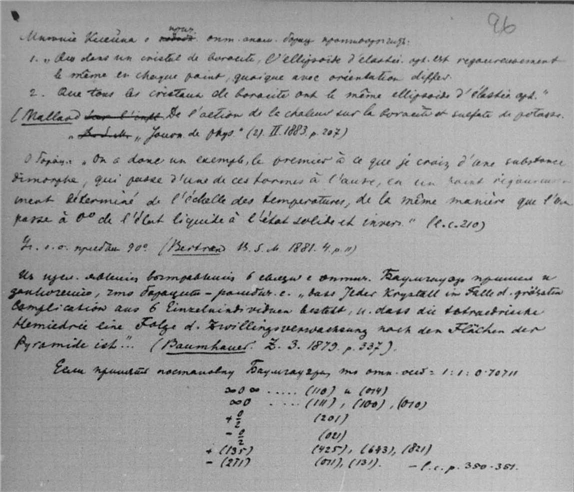 96
Мнение Клейна о опт. аном. борац. противоречит:
1. „Que dans un cristal de boracite, l'ellipsoïde d'élastic. opt. est rigoureusement
le même en chaque point, quoique avec orientation différ.
2. Que tous les cristaux de boracite ont le même ellipsoïde d'élastic. opt."
(Mallard De l'action de la chaleur sur la boracite et sulfate de potasse.
„Journ de phys" (2). II. 1883. p. 207)
О борац. „On a donc un exemple, le premier à ce que je crois d'une substance
dimorphe, qui passe d'une de ces formes à l'autre, en un point rigoureuse-
ment déterminé de l'échelle des températures, de la même manière que l'eau
passe à 0° de l'état liquide à l'état solide et invers." (l. c. 210)
90° (Bertrand B. S. M. 1881. 4. p. 11)
Из явлений вытравления в связи с оптич. Баумгауэр пришел к
заключению, что борацит — ромбич. с. „dass jeder Krystall im Falle d. größten
Complication aus 6 Einzelindividuen besteht, u. dass die tetraedrische
Hemiedrie eine Folge d. Zwillingsverwachsung nach den Flächen der
Pyramide ist." (Baumhauer. Z. 3. 1879. p. 337).
Если принять постановку Баумгауэра, то отн. осей = 1 : 1 : 0·70711
∞0∞ ..... (110) и (014)
∞0 ..... (111), (100), (010)
+ 0/2 (201)
− 0/2 (021)
+ (135) (425), (643), (821)
− (271) (011), (131). — l. c. p. 350-351.